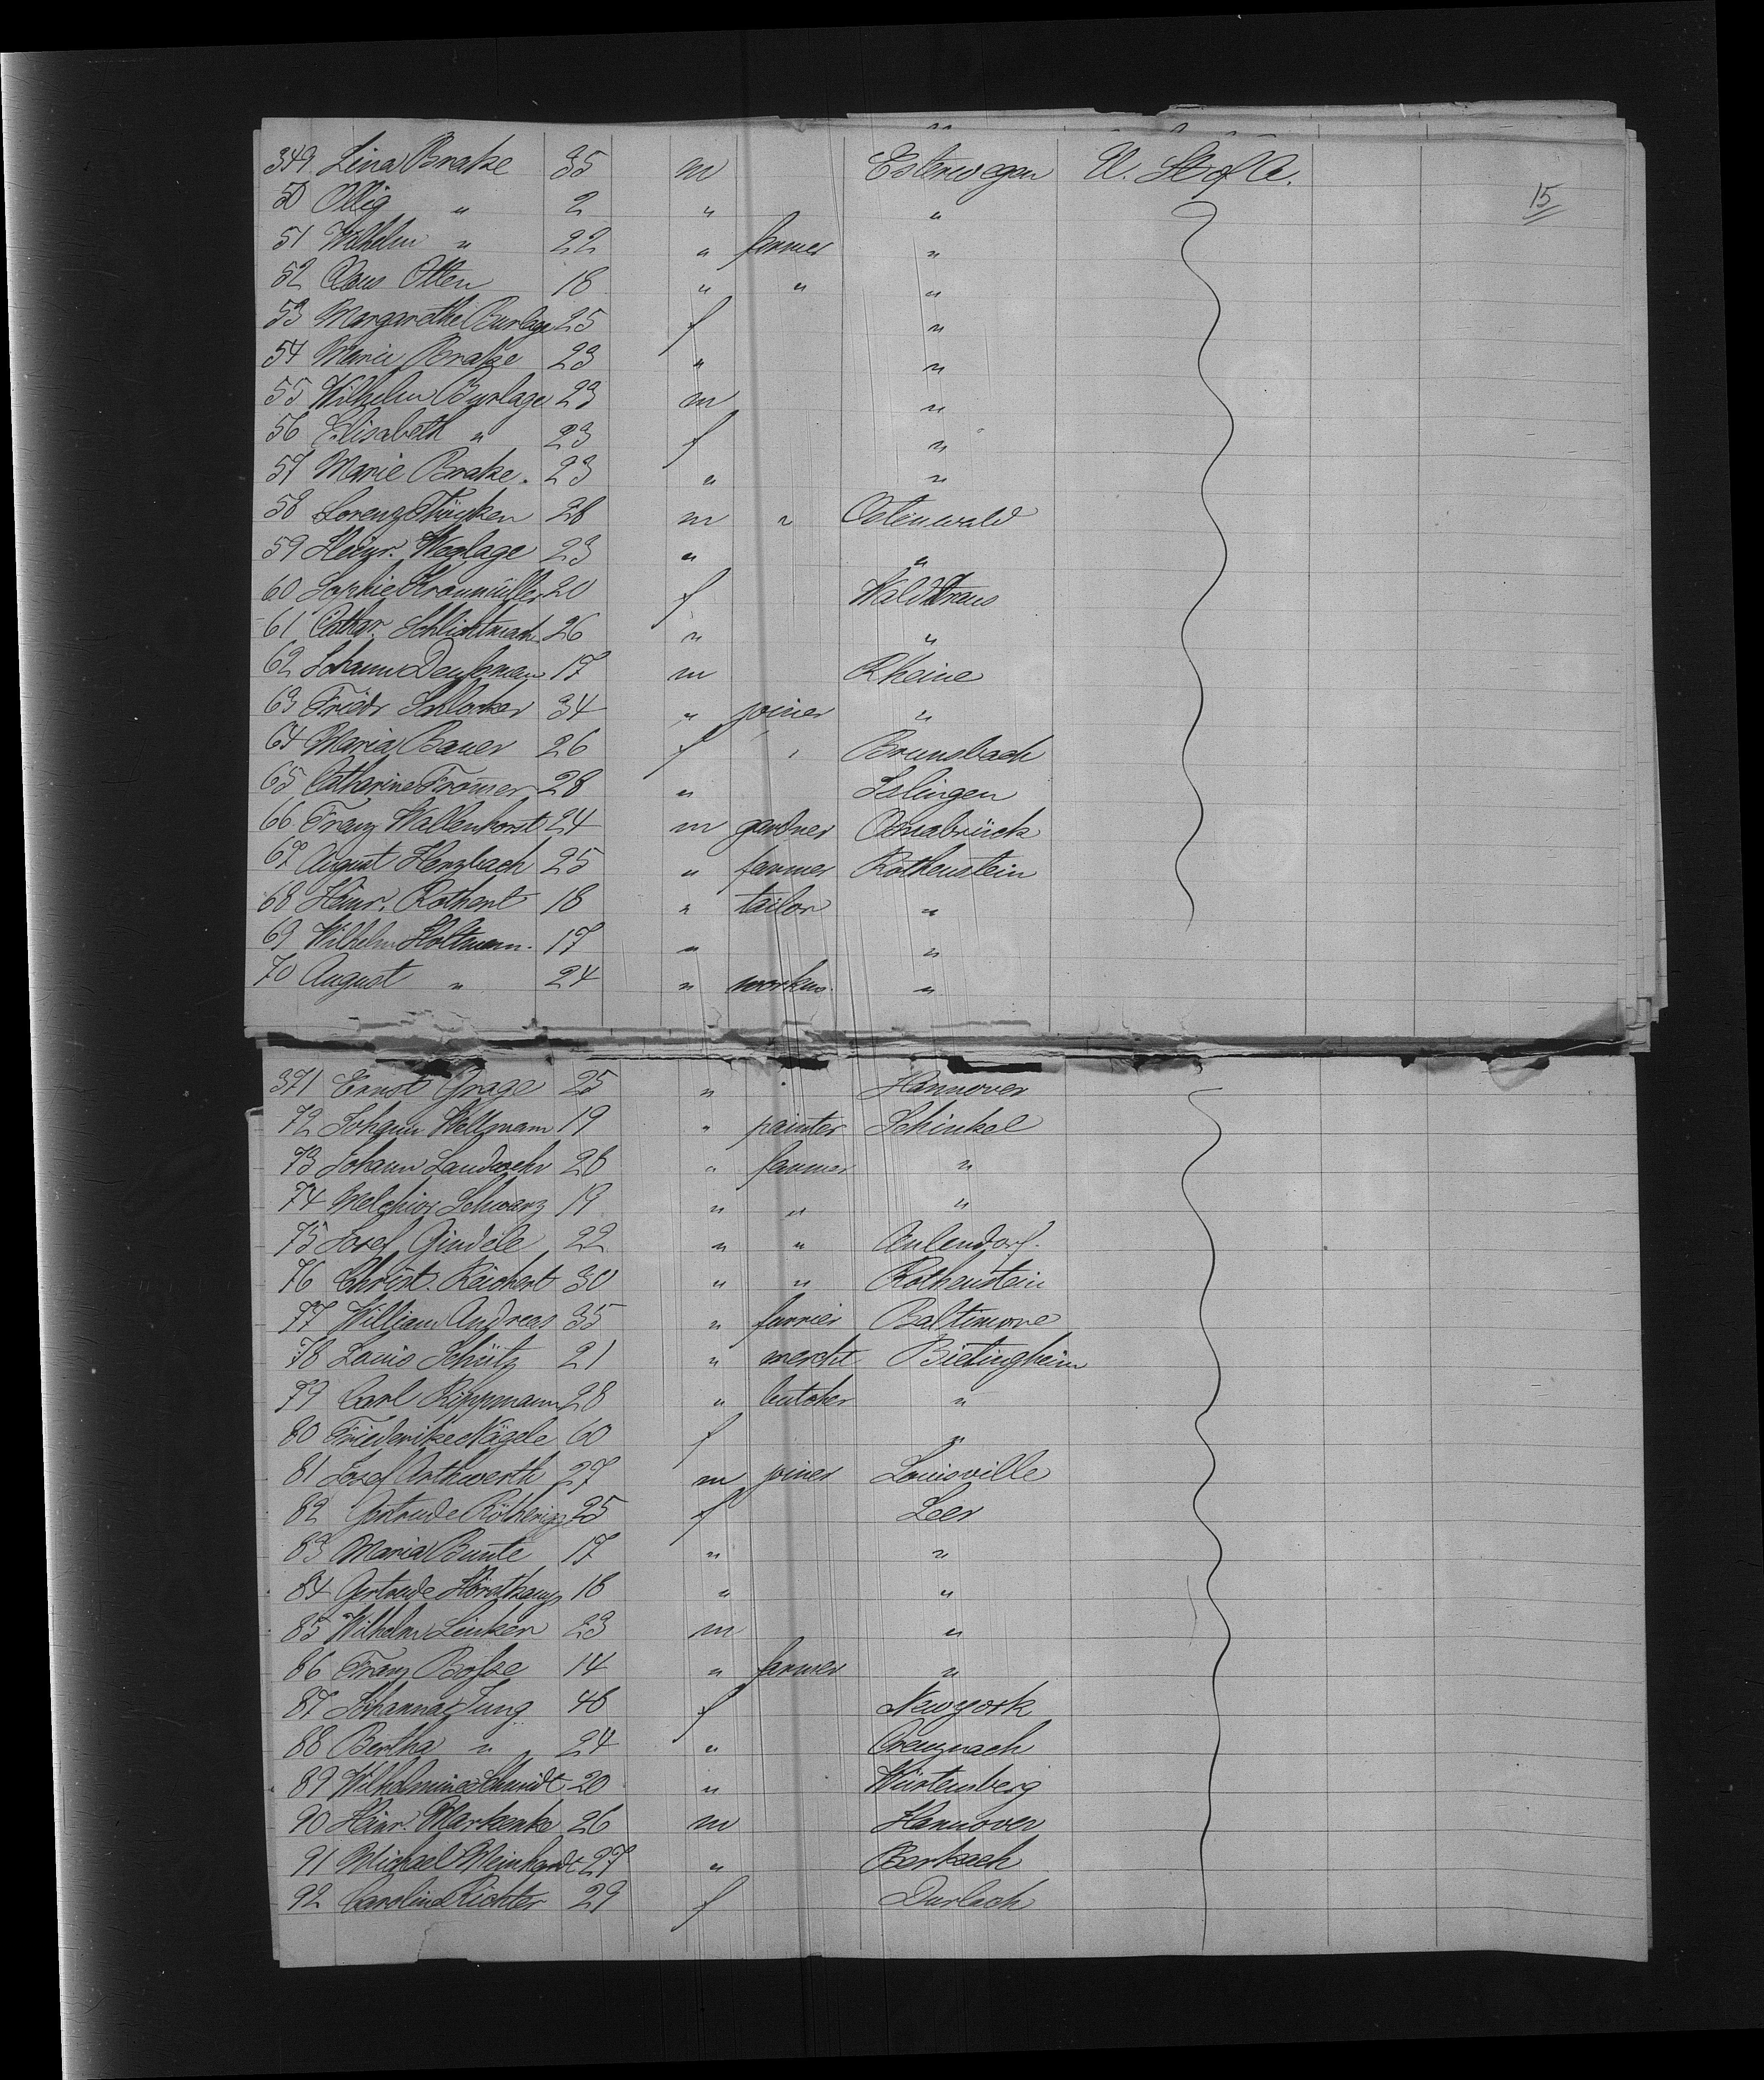 349 Lina Brake 35 m Esterwegen U. St of A.
15
50 Ollig " 2 " "
51 Wilhelm " 22 " farmer "
52 Claus Otten 18 " " "
53 Margarethe Burlage 25 f "
54 Marie Brake 23 " "
55 Wilhelm Burlage 23 m "
56 Elisabeth " 23 f "
57 Marie Brake. 23 " "
58 Lorenz 28 m " Ostenwald
59 Heinr. Worlage 23 " "
60 Sophie Kronmüller 20 f
61 Cathar. Schlichtmach 26 " "
62 Johann Denkman 17 m Rheine
63 Friedr Schlocker 34 " joiner "
64 Maria Bauer 26 f Brunsbach
65 Catharine Fromer 28 " Islingen
66 Franz Wallenhorst 24 m gardner Osnabrück
67 August Herzbach 25 " farmer Rothenstein
68 Heinr. Rothert 18 " tailor "
69 Wilhelm Holtmann. 17 " "
70 August " 24 " workm. "
371 Ernst Grage 25 " Hannover
72 Johann Wellmann 19 " painter Schinkel
73 Johann Landwehr 26 " farmer "
74 Melchior Schwarz 19 " " "
75 Josef Gindele 22 " " Aulendorf.
76 Christ. Reichert 30 " " Rothenstein
77 William Andrees 35 " furrier Baltimore
78 Louis Schütz 21 " mercht Bietingheim
79 Carl Rippmann 28 " butcher "
80 Friederike Nägele 60 f "
81 Josef Arthwerth 27 m joiner Louisville
82 Gertrude Röthering 25 f Leer
83 Maria Bunte 17 " "
84 Gertrude Horstkamp 18 " "
85 Wilhelm Linken 23 m "
86 Franz Boße 14 " farmer "
87 Johanna Jung 46 f Newyork
88 Bertha " 24 " Creuznach
89 Wilhelmine Schmidt 20 " Würtemberg
90 Heinr. Markenke 26 m Hannover
91 Michael Meinhardt 27 " Berkach
92 Caroline Richter 29 f Durlach